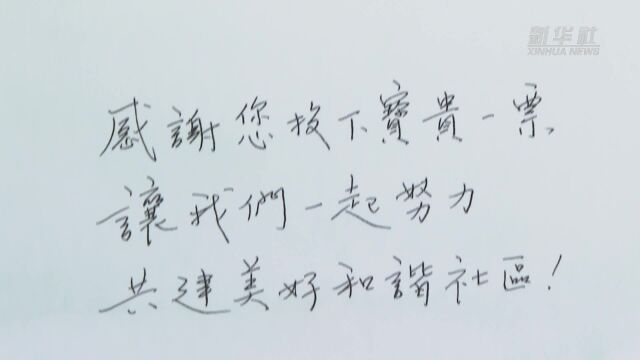 新华社
XINHUA NEWS
感謝您投下寶貴一票
讓我們一起努力
共建美好和諧社區!